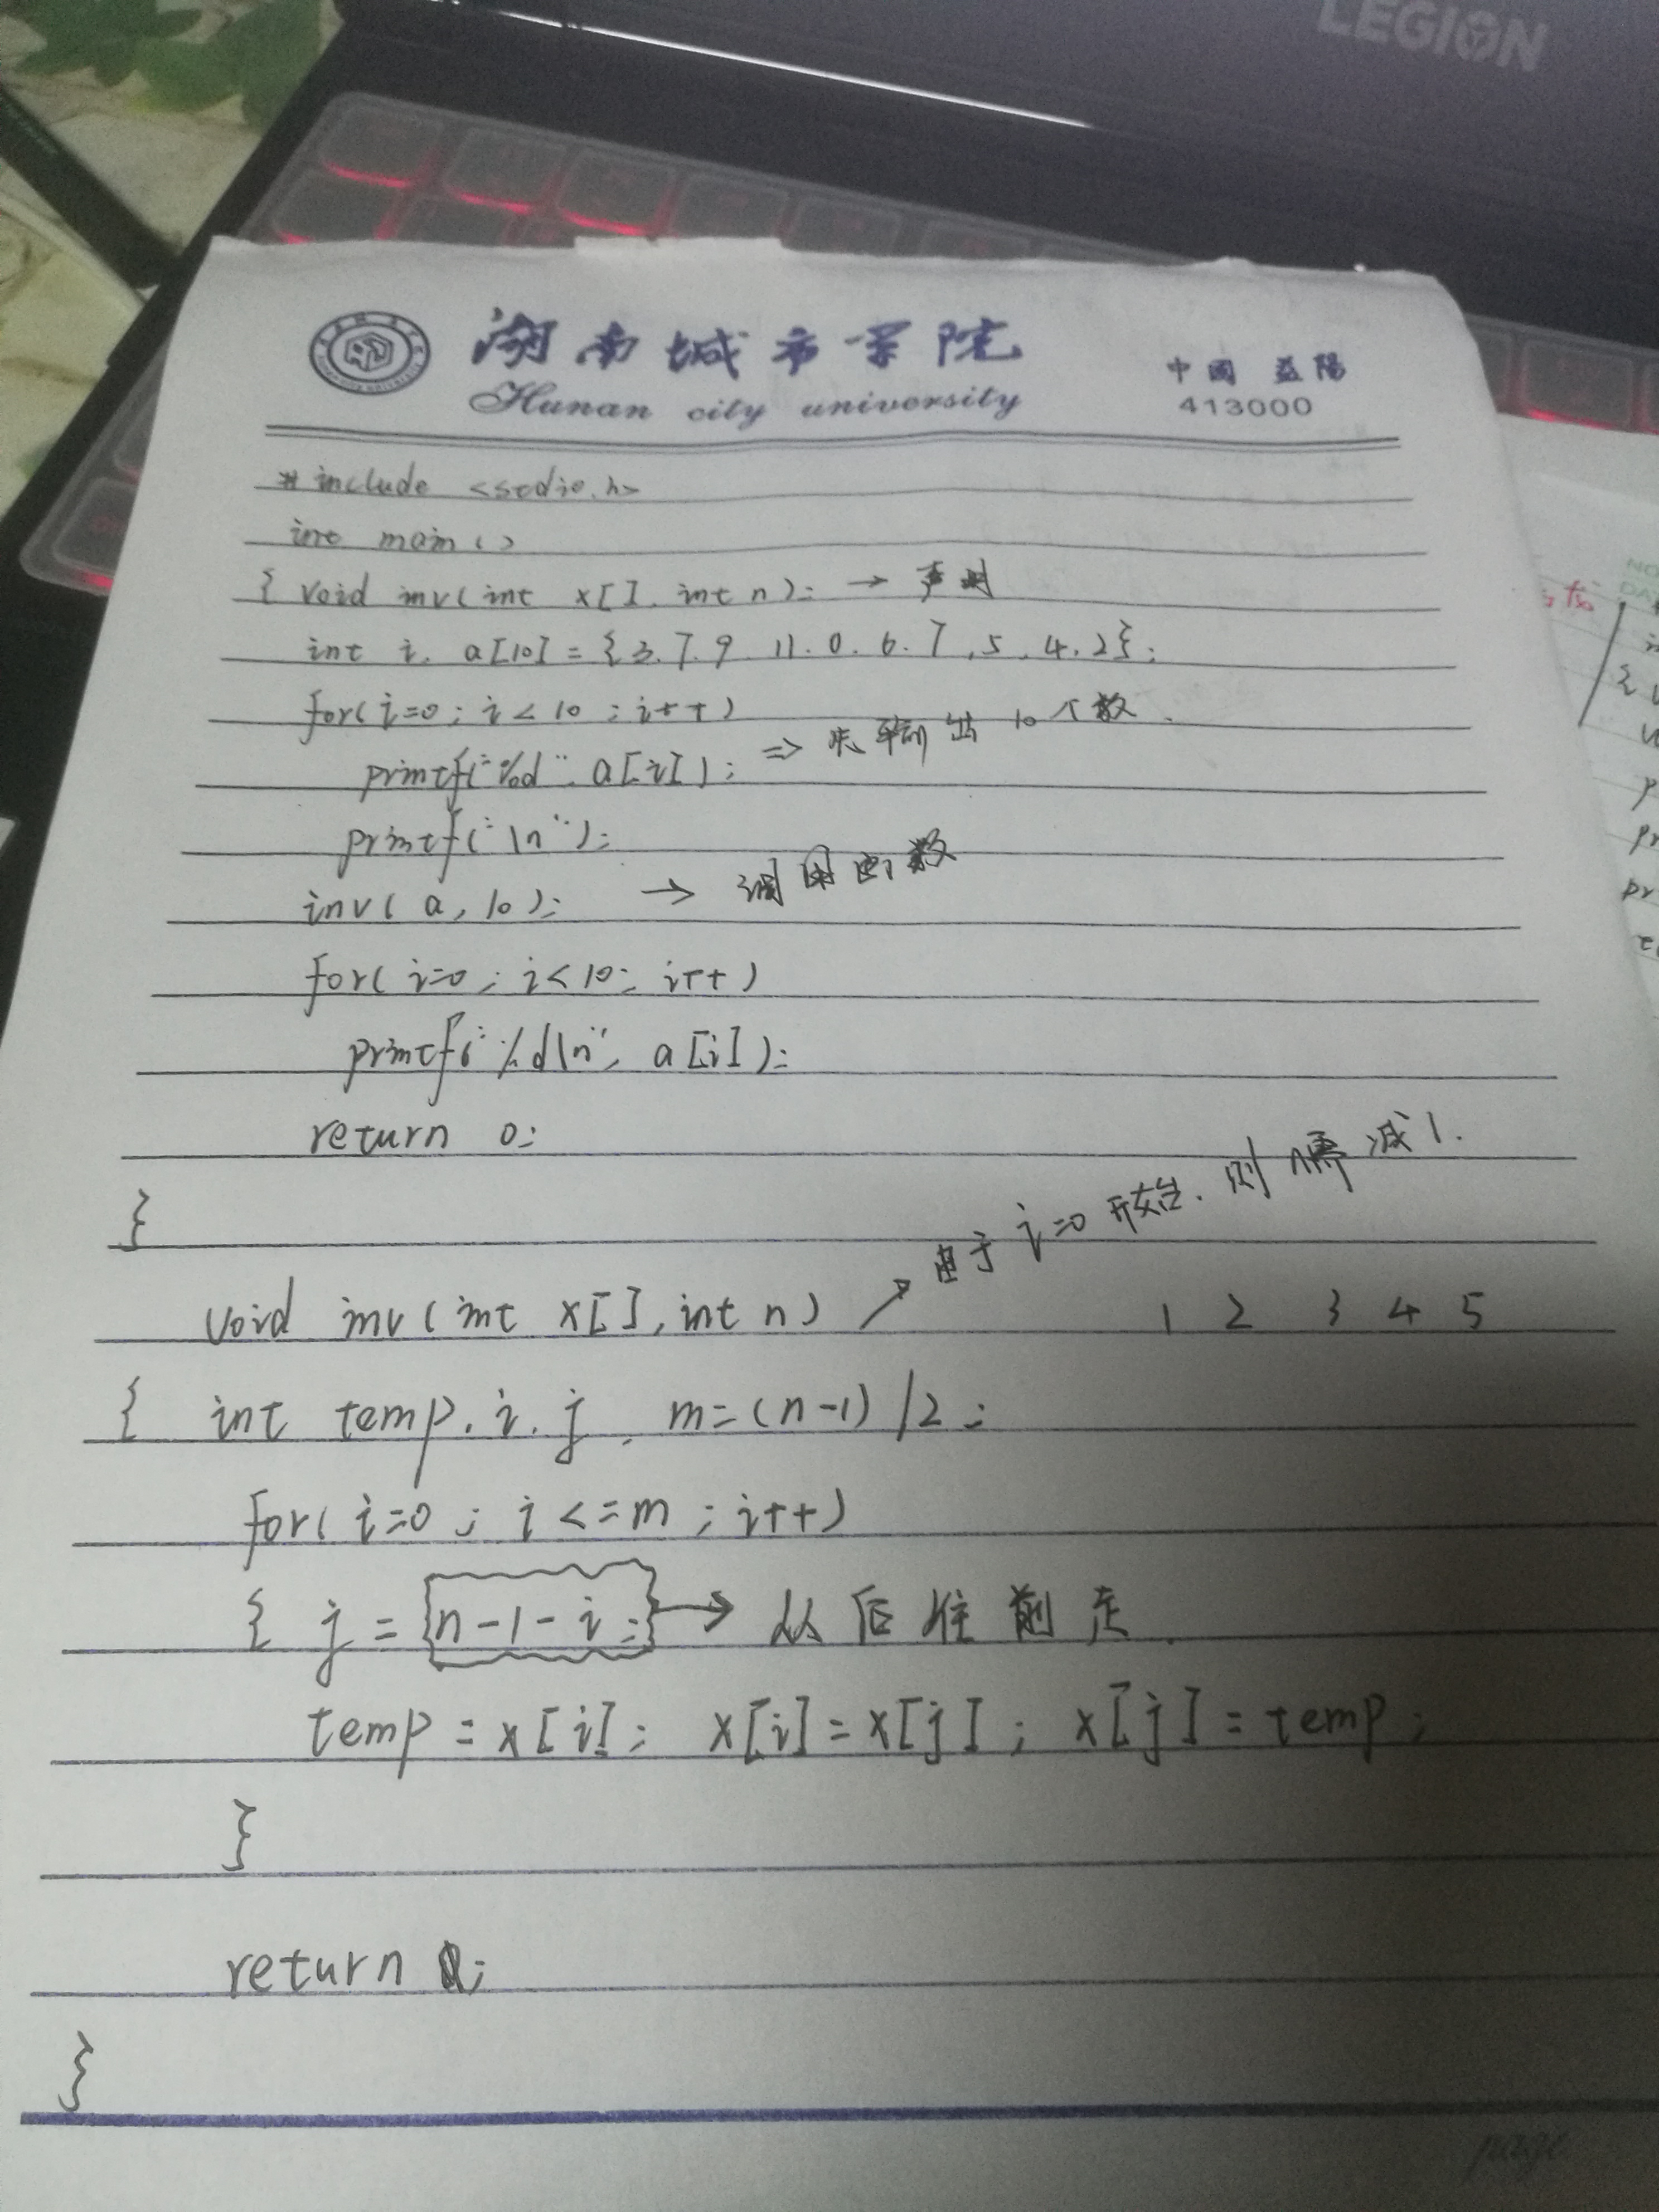 LEGION
湖南城市学院
Hunan city university
中國 益陽
413000
#include <stdio.h>
int main()
{ void inv(int x[], int n); → 声明
int i, a[10] = {3,7,9,11,0,6,7,5,4,2};
for(i=0; i<10; i++)
printf("%d", a[i]); ⇒ 先输出10个数.
printf("\n");
inv(a, 10); → 调用函数
for(i=0; i<10; i++)
printf("%d\n", a[i]);
return 0;
}
由于 i=0 开始. 则 n需减1.
void inv(int x[], int n) ↗
1 2 3 4 5
{ int temp, i, j, m=(n-1)/2;
for(i=0; i<=m; i++)
{ j = n-1-i; → 从后往前走.
temp = x[i]; x[i] = x[j]; x[j] = temp;
}
return ;
}
page